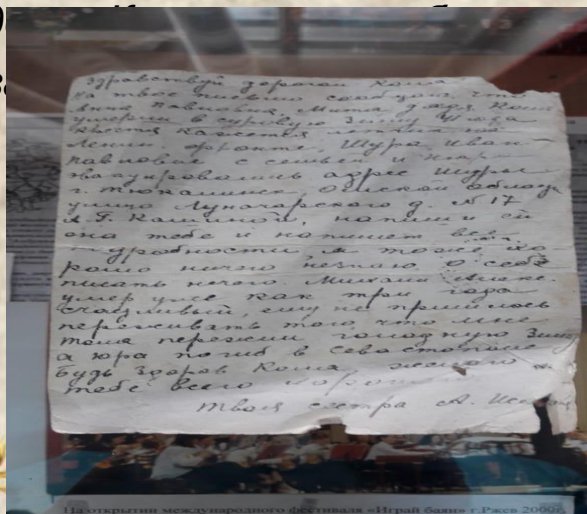 Здравствуй дорогой Коша.
На твое письмо сообщаю, что
Павловна, Митя дядя Коша
умерли в суровую зиму
Костя кажется
Ленин. фронте. Шура Иван-
Павловне с семьей и
эвакуировались адрес Шуры
г. Тюкалинск, Омской области
улица Луначарского д. №17
А. Г. Кашиной, напиши ей
она тебе и напишет все
подробности я тоже хо-
рошо ничего незнаю, о себе
писать нечего. Михаил
умер уже как три года
счастливый, ему не пришлось
переживать того, что мне
тоже пережили голодную зиму
а Юра погиб в Севастополе
Будь здоров Коша, желаю
тебе всего хорош
твоя сестра А.
На открытии международного фестиваля «Играй баян» г.Ржев 2000г.